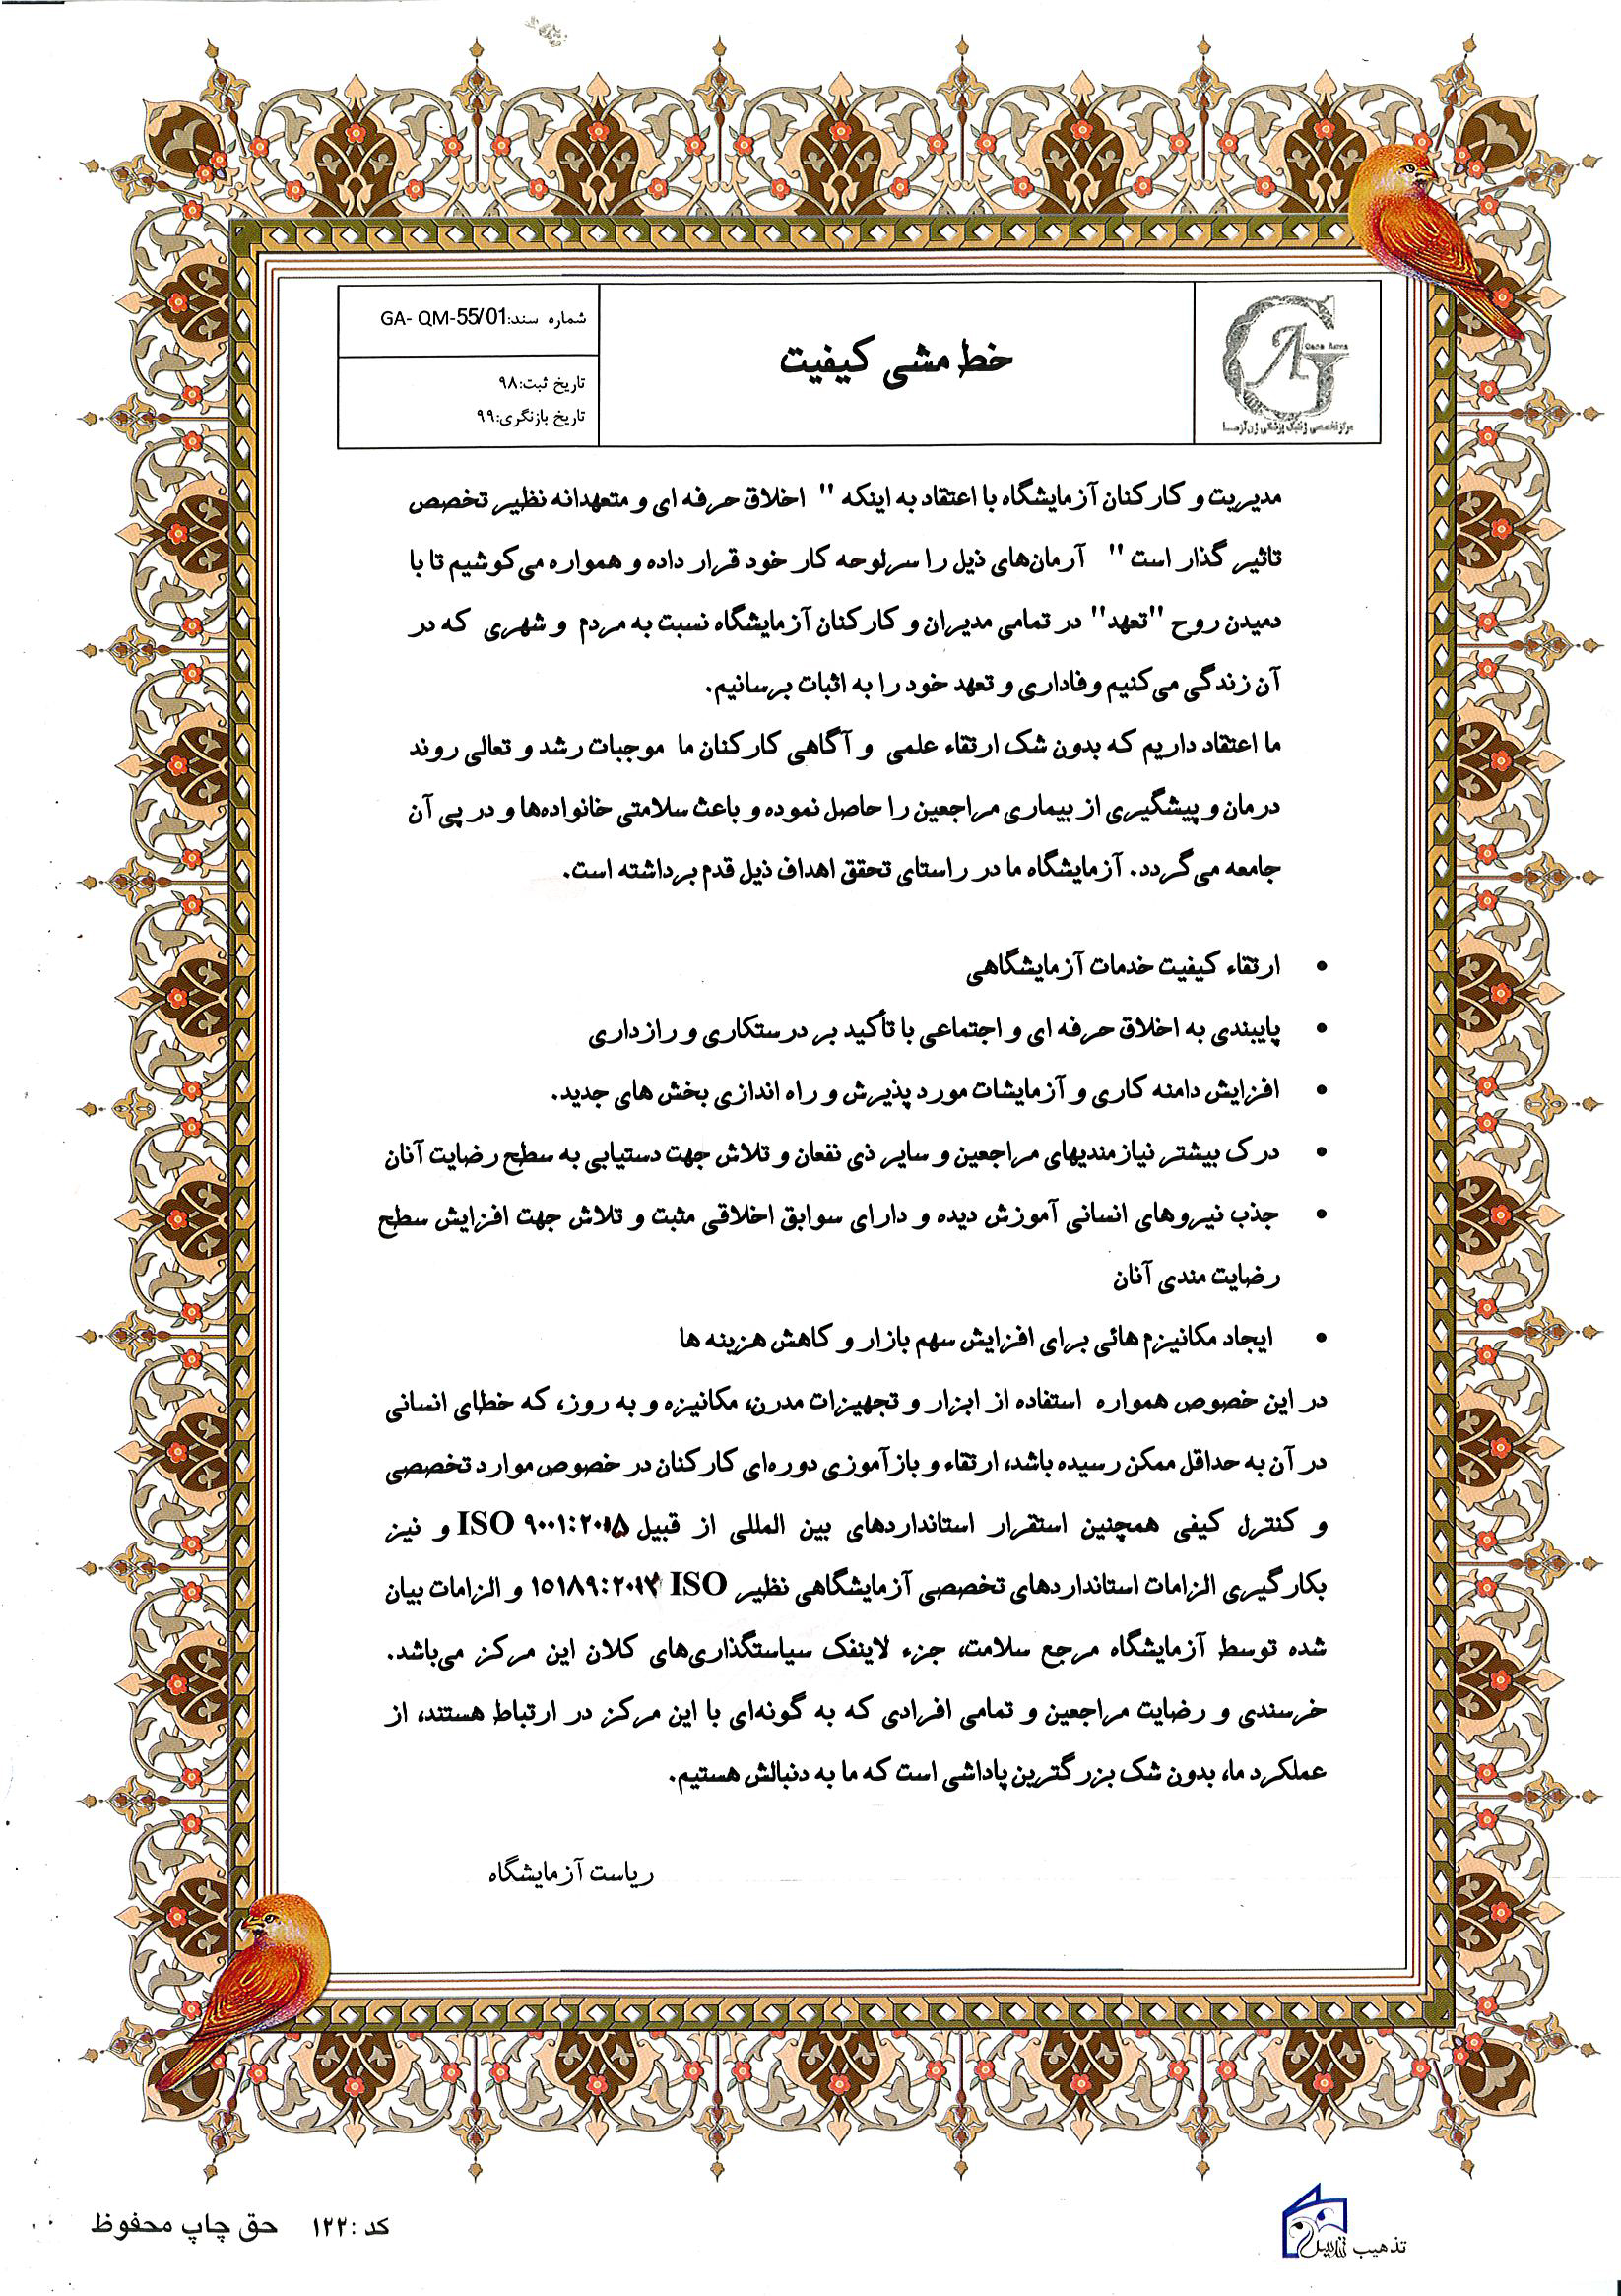 Gene Azma
مرکز تخصصی ژنتیک پزشکی ژن آزمـــا
خط مشی کیفیت
شماره سند:GA- QM-55/01
تاریخ ثبت:۹۸
تاریخ بازنگری:۹۹
مدیریت و کارکنان آزمایشگاه با اعتقاد به اینکه " اخلاق حرفه ای و متعهدانه نظیر تخصص
تاثیر گذار است " آرمان‌های ذیل را سرلوحه کار خود قرار داده و همواره می‌کوشیم تا با
دمیدن روح "تعهد" در تمامی مدیران و کارکنان آزمایشگاه نسبت به مردم و شهری که در
آن زندگی می‌کنیم وفاداری و تعهد خود را به اثبات برسانیم.
ما اعتقاد داریم که بدون شک ارتقاء علمی و آگاهی کارکنان ما موجبات رشد و تعالی روند
درمان و پیشگیری از بیماری مراجعین را حاصل نموده و باعث سلامتی خانواده‌ها و در پی آن
جامعه می‌گردد. آزمایشگاه ما در راستای تحقق اهداف ذیل قدم برداشته است.
• ارتقاء کیفیت خدمات آزمایشگاهی
• پایبندی به اخلاق حرفه ای و اجتماعی با تأکید بر درستکاری و رازداری
• افزایش دامنه کاری و آزمایشات مورد پذیرش و راه اندازی بخش های جدید.
• درک بیشتر نیازمندیهای مراجعین و سایر ذی نفعان و تلاش جهت دستیابی به سطح رضایت آنان
• جذب نیروهای انسانی آموزش دیده و دارای سوابق اخلاقی مثبت و تلاش جهت افزایش سطح
رضایت مندی آنان
• ایجاد مکانیزم هائی برای افزایش سهم بازار و کاهش هزینه ها
در این خصوص همواره استفاده از ابزار و تجهیزات مدرن، مکانیزه و به روز، که خطای انسانی
در آن به حداقل ممکن رسیده باشد، ارتقاء و بازآموزی دوره‌ای کارکنان در خصوص موارد تخصصی
و کنترل کیفی همچنین استقرار استانداردهای بین المللی از قبیل ISO ۹۰۰۱:۲۰۱۵ و نیز
بکارگیری الزامات استانداردهای تخصصی آزمایشگاهی نظیر ISO ۱۵۱۸۹:۲۰۱۲ و الزامات بیان
شده توسط آزمایشگاه مرجع سلامت، جزء لاینفک سیاستگذاری‌های کلان این مرکز می‌باشد.
خرسندی و رضایت مراجعین و تمامی افرادی که به گونه‌ای با این مرکز در ارتباط هستند، از
عملکرد ما، بدون شک بزرگترین پاداشی است که ما به دنبالش هستیم.
ریاست آزمایشگاه
کد :۱۲۲ حق چاپ محفوظ
تذهیب